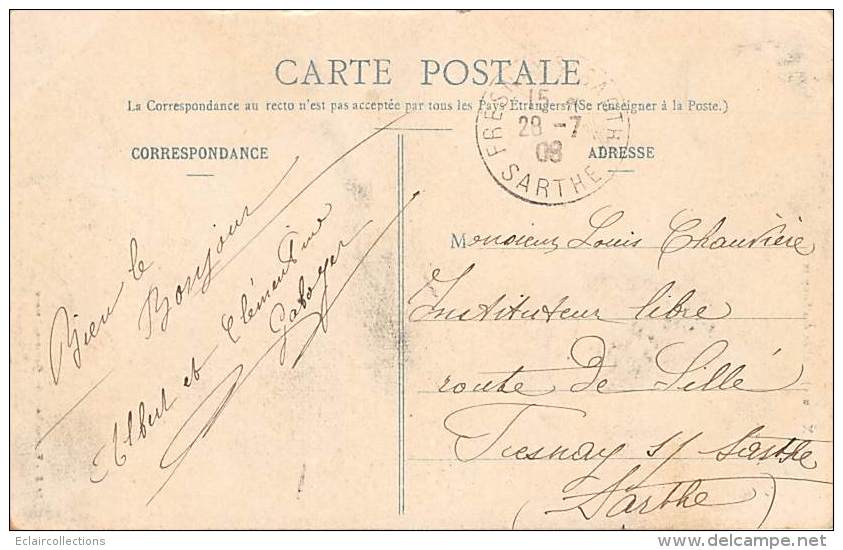 CARTE POSTALE
La Correspondance au recto n'est pas acceptée par tous les Pays Étrangers (Se renseigner à la Poste.)
CORRESPONDANCE
ADRESSE
SARTHE
28 -7
08
SARTHE
Bien le
Bonjour
Albert et Clémentine
Monsieur Louis Chauvière
Instituteur libre
route de Sillé
Fresnay s/ Sarthe
(Sarthe)
Eclaircollections
www.delcampe.net